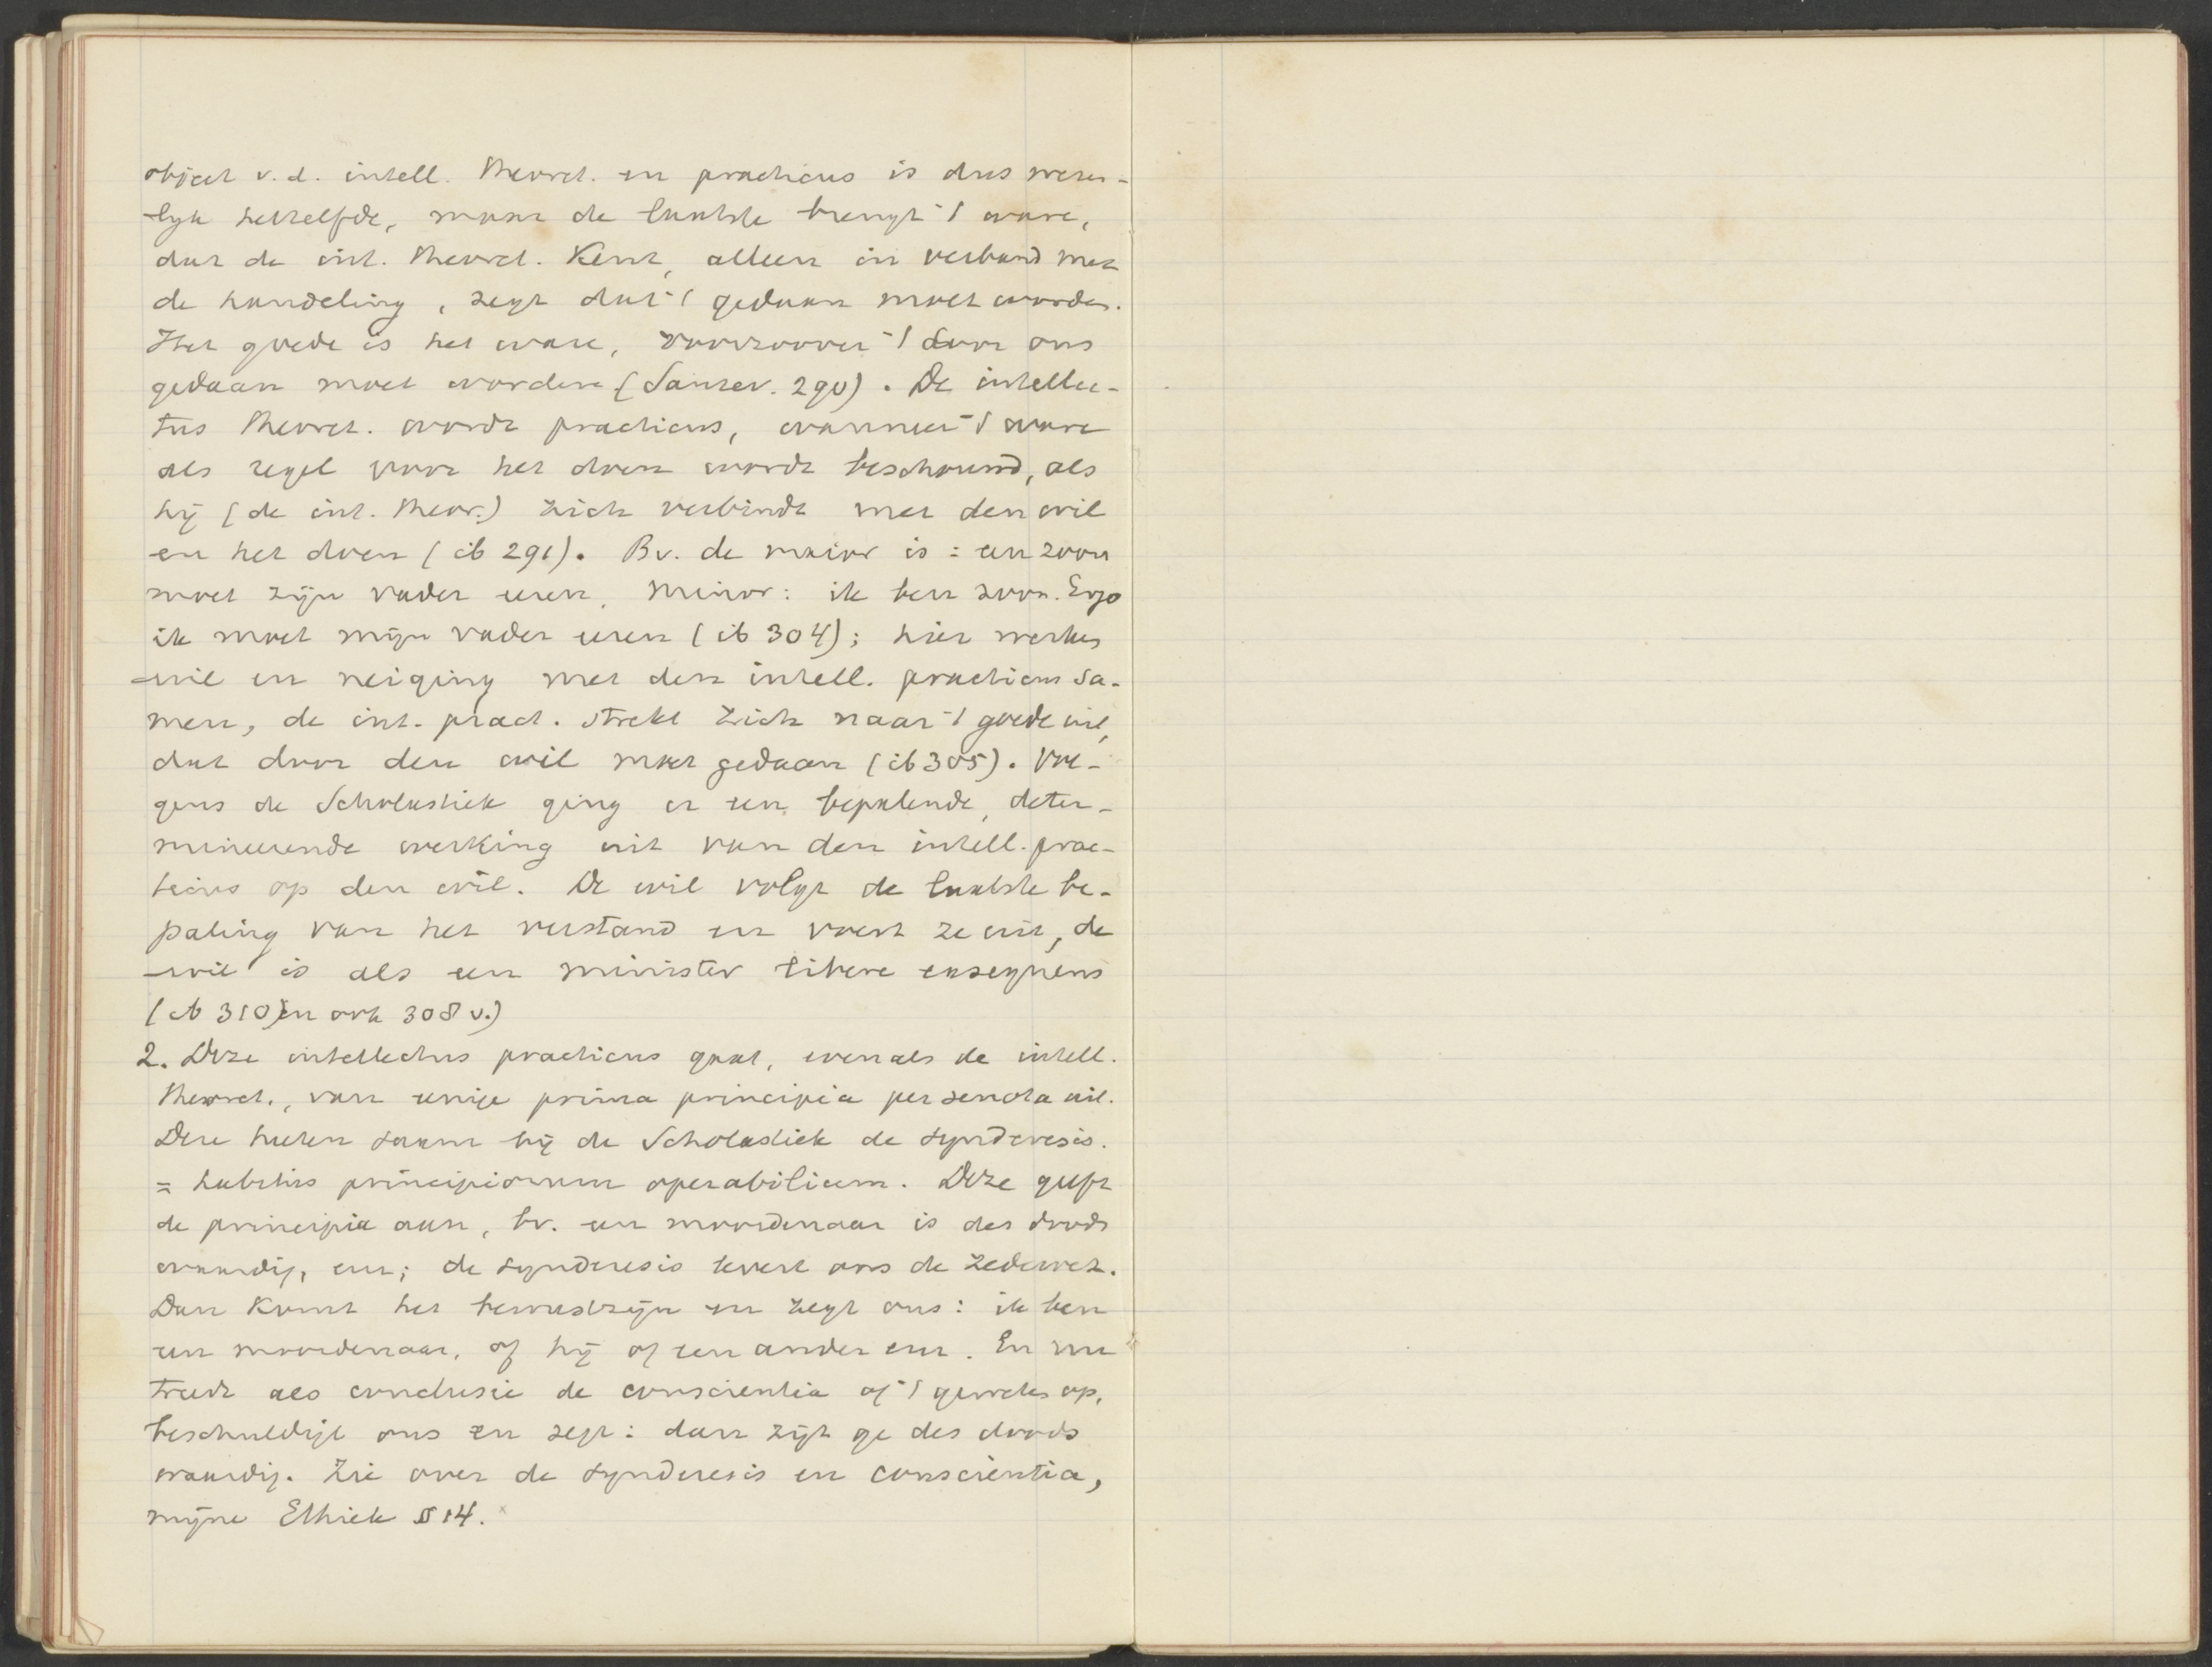 object v. d. intell. theoret. en practicus is dus wezen-
lyk hetzelfde, maar de laatste brengt 't ware,
dat de int. theoret. kent, alleen in verband met
de handeling, zegt dat 't gedaan moet worden.
Het goede is het ware, voorzoover 't door ons
gedaan moet worden (Sansev. 290). De intellec-
tus theoret. wordt practicus, wanneer 't ware
als regel voor het doen wordt beschouwd, als
hij (de int. theor.) zich verbindt met den wil
en het doen (ib 291). Bv. de maior is: een zoon
moet zijn vader eeren, minor: ik ben zoon. Ergo
ik moet mijn vader eeren (ib 304); hier werken
wil en neiging met den intell. practicus sa-
men, de int. pract. strekt zich naar 't goede uit,
dat door den wil moet gedaan (ib 305). Vol-
gens de Scholastiek ging er een bepalende, deter-
mineerende werking uit van den intell. prac-
ticus op den wil. De wil volgt de laatste be-
paling van het verstand en voert ze uit, de
wil is als een minister libere exsequens
(ib 310) en ook 308 v.)
2. Deze intellectus practicus gaat, evenals de intell.
theoret., van eenige prima principia per se nota uit.
Deze heeten saam bij de Scholastiek de synderesis.
= habitus principiorum operabilium. Deze geeft
de principia aan, bv. een moordenaar is des doods
waardig, enz; de synderesis levert ons de zedewet.
Dan komt het bewustzijn en zegt ons: ik ben
een moordenaar, of hij of een ander enz. En nu
treedt als conclusie de conscientia of 't geweten op,
beschuldigt ons en zegt: dan zijt ge des doods
waardig. Zie over de synderesis en conscientia,
mijne Ethiek § 14.